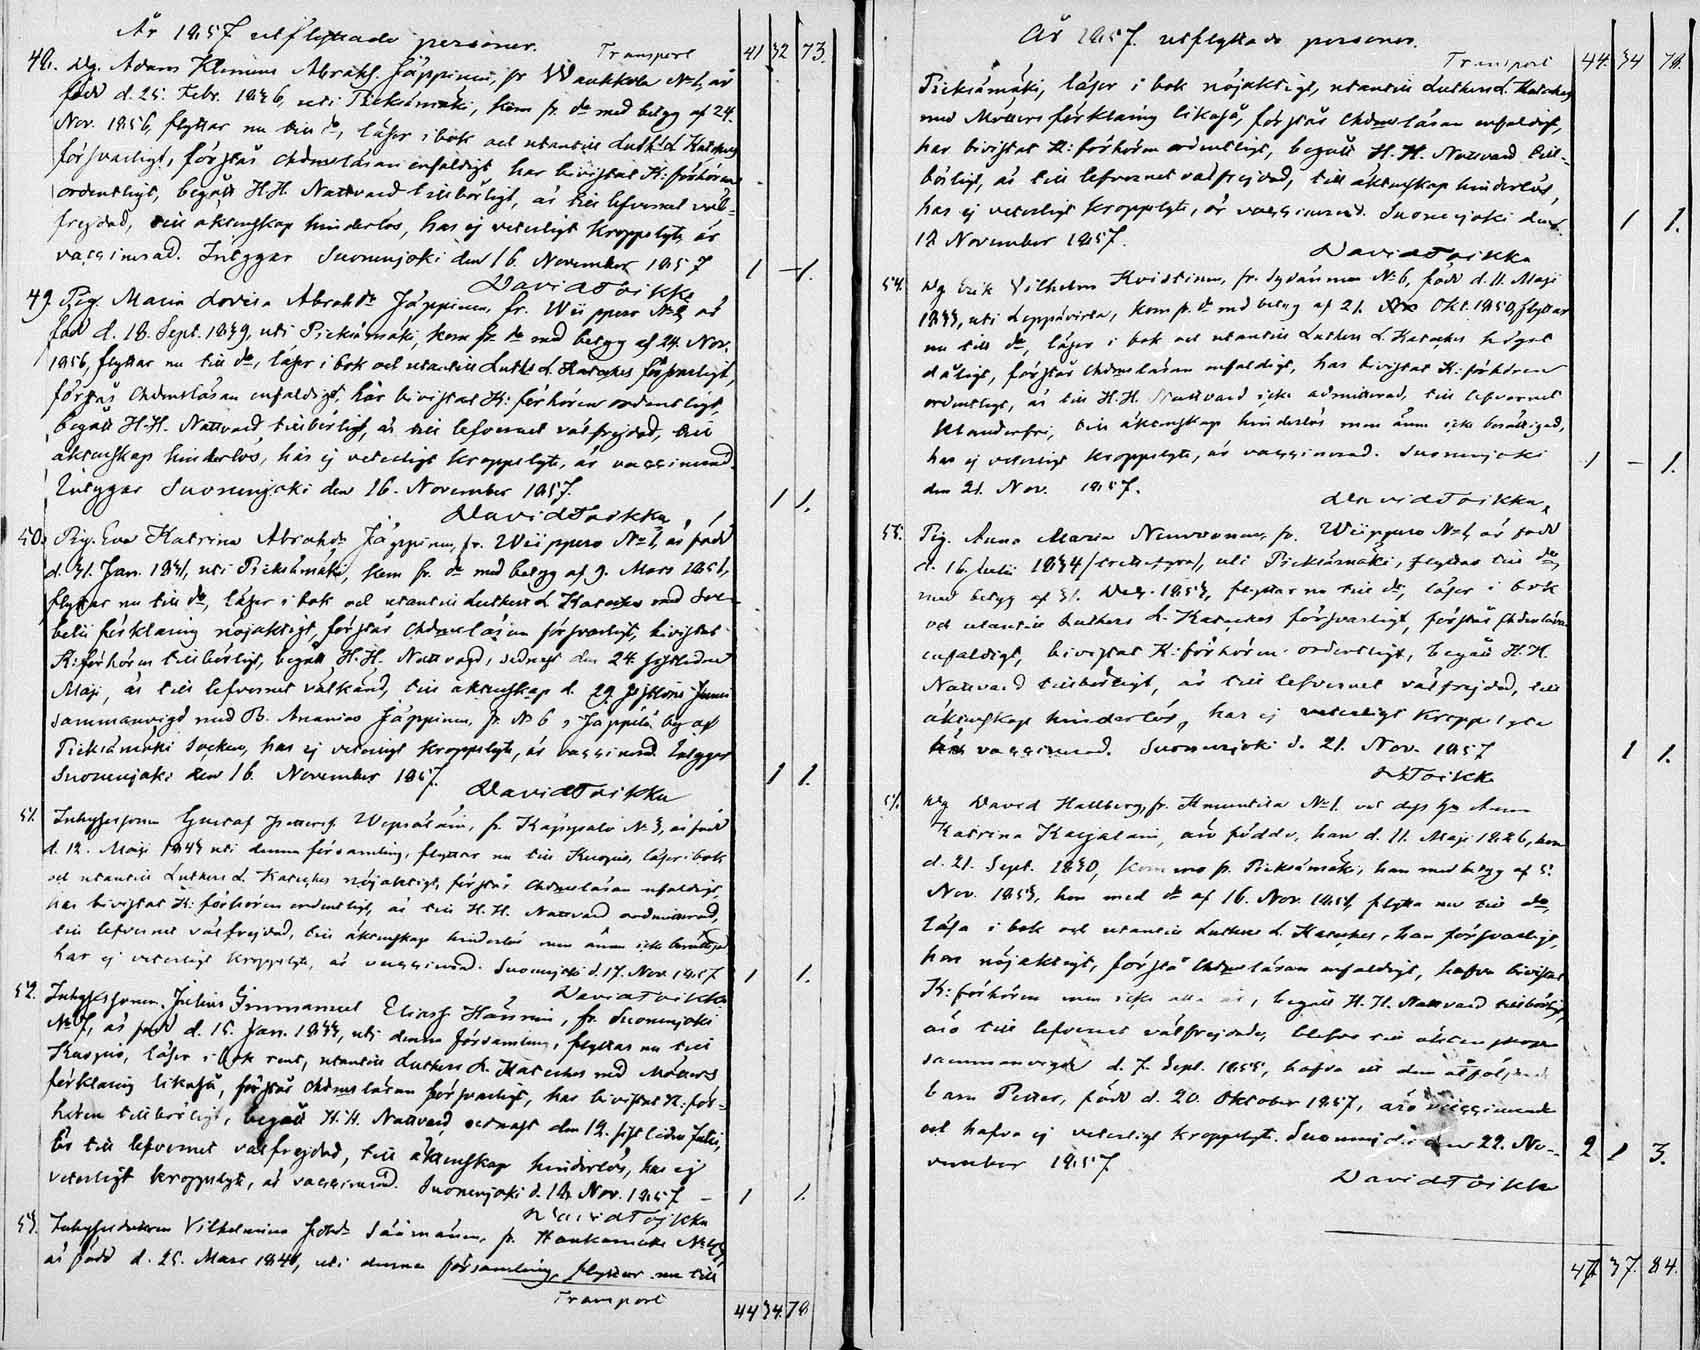 År 1857 utflyttade personer.
Transport 41 32 73.
48. Dg. Adam Klemens Abrahs. Jäppinen, fr. Waukkola No 1, är
född d. 25. Febr. 1836, uti Pieksämäki, kom fr. do med betyg af 24.
Nov. 1856, flyttar nu till do, läser i bok och utantill Luth. L. Kateches
försvarligt, förstår Chdmsläran enfaldigt, har bivistat K: förhören
ordentligt, begått H.H. Nattvard tillbörligt, är till lefvernet väl=
frejdad, till äktenskap hinderlös, har ej veterligt kroppslyte, är
vaccinerad. Intygar Suonenjoki den 16. November 1857 1 – 1.
David Toikka
49. Pig. Maria Lovisa Abrahdr Jäppinen, fr. Wiippuro No 1, är
född d. 18. Sept. 1839, uti Pieksämäki, kom fr. do med betyg af 24. Nov.
1856, flyttar nu till do, läser i bok och utantill Luths L. Kateches försvarligt,
förstår Chdmsläran enfaldigt, har bivistat K: förhören ordentligt,
begått H.H. Nattvard tillbörligt, är till lefvernet välfrejdad, till
äktenskap hinderlös, har ej veterligt kroppslyte, är vaccinerad.
Intygar Suonenjoki den 16. November 1857. 1 1.
David Toikka
50. Pig. Eva Katrina Abrahdr Jäppinen, fr. Wiippuro No 1, är född
d. 31. Jan. 1831, uti Pieksämäki, kom fr. do med betyg af 9. Mars 1851,
flyttar nu till do, läser i bok och utantill Luthers L. Kateches med Sve-
belii förklaring nöjaktigt, förstår Chdmsläran försvarligt, bivistat
K: förhören tillbörligt, begått H.H. Nattvard, sednast den 24. sistledne
Maji, är till lefvernet välkänd, till äktenskap d. 29. sistledne Junii
sammanvigd med B. Ananias Jäppinen, fr. No 6 i Jäppilä by af
Pieksämäki Socken, har ej veterligt kroppslyte, är vaccinerad. Intygar
Suonenjoki den 16. November 1857. 1 1.
David Toikka
51. Inhyssonen Gustaf Wepsäläin, fr. Käpysalo No 3, är född
d. 12. Maji 1843 uti denna församling, flyttar nu till Kuopio, läser i bok
och utantill Luthers L. Kateches nöjaktigt, förstår Chdmsläran enfaldigt,
har bivistat K: förhören ordentligt, är till H.H. Nattvard oadmitterad,
till lefvernet välfrejdad, till äktenskap hinderlös men ännu icke berättigad
har ej veterligt kroppslyte, är vaccinerad. Suonenjoki d. 17. Nov. 1857 1 1.
David Toikka
52. Inhyssonen Julius Immanuel Eliass. Hännin, fr. Suonenjoki
No 7, är född d. 15. Jan. 1833, uti denna församling, flyttar nu till
Kuopio, läser i bok rent, utantill Luthers L. Kateches med Möllers
förklaring likaså, förstår Chdmsläran försvarligt, har bivistat K: för=
hören tillbörligt, begått H.H. Nattvard, sednast den 12. sistledne Julii,
är till lefvernet välfrejdad, till äktenskap hinderlös, har ej
veterligt kroppslyte, är vaccinerad. Suonenjoki d. 18. Nov. 1857 – 1 1.
David Toikka
53. Inhysedottren Vilhelmina Säämänen, fr. Haukamäki No
är född d. 25. Mars uti denna församling, flyttar nu till
Transport 44 34. 78
År 1857. utflyttade personer.
Transport 44. 34 78.
Pieksämäki, läser i bok nöjaktigt, utantill Luthers L. Kateches
med Möllers förklaring likaså, förstår Chdmsläran enfaldigt,
har bivistat K: förhören ordentligt, begått H.H. Nattvard till-
börligt, är till lefvernet välfrejdad, till äktenskap hinderlös,
har ej veterligt kroppslyte, är vaccinerad. Suonenjoki den 1 1.
18 November 1857.
David Toikka
54. Dg Erik Vilhelm Kvistinen, fr. Sydänmaa No 6, född d. 11. Maji
1833, uti Leppävirta, kom fr. do med betyg af 21. Okt. 1850, flyttar
nu till do, läser i bok och utantill Luthers L. Kateches högst
dåligt, förstår Chdmsläran enfaldigt, har bivistat K: förhören
ordentligt, är till H.H. Nattvard icke admitterad, till lefvernet
klanderfri, till äktenskap hinderlös men ännu icke berättigad,
har ej veterligt kroppslyte, är vaccinerad. Suonenjoki 1 – 1.
den 21. Nov. 1857.
David Toikka
55. Pig. Anna Maria Neuvonen, fr. Wiippuro No 1, är född
d. 16 Julii 1834 /trettifyra/, uti Pieksämäki, flyttar till do,
med betyg af 31. Dec. 1853, flyttar nu till do, läser i bok
och utantill Luthers L. Kateches försvarligt, förstår Chdmsläran
enfaldigt, bivistat K: förhören ordentligt, begått H.H.
Nattvard tillbörligt, är till lefvernet välfrejdad, till
äktenskap hinderlös, har ej veterligt kroppslyte
vaccinerad. Suonenjoki d. 21. Nov. 1857 1 1.
D. Toikka
Dg David Hallberg, fr. Kmuntila No 1. och dess Hu Anna
Katrina Karjalain, äro födde, han d. 11. Maji 1826, hon
d. 21. Sept. 1830, kommo fr. Pieksämäki, han med betyg af 5.
Nov. 1853, hon med do af 16. Nov. 1854, flytta nu till do,
läsa i bok och utantill Luthers L. Kateches, han försvarligt,
hon nöjaktigt, förstå Chdmsläran enfaldigt, hafva bivistat
K: förhören men icke alla år, begått H.H. Nattvard tillbörligt,
äro till lefvernet välfrejdade, blefvo till äktenskap
sammanvigde d. 7. Sept. 1855, hafva ett dem åtföljande
barn Petter, född d. 20. Oktober 1857, äro vaccinerade
och hafva ej veterligt kroppslyte. Suonenjoki den 22. No- 2 1 3.
vember 1857
David Toikka
47. 37. 84.